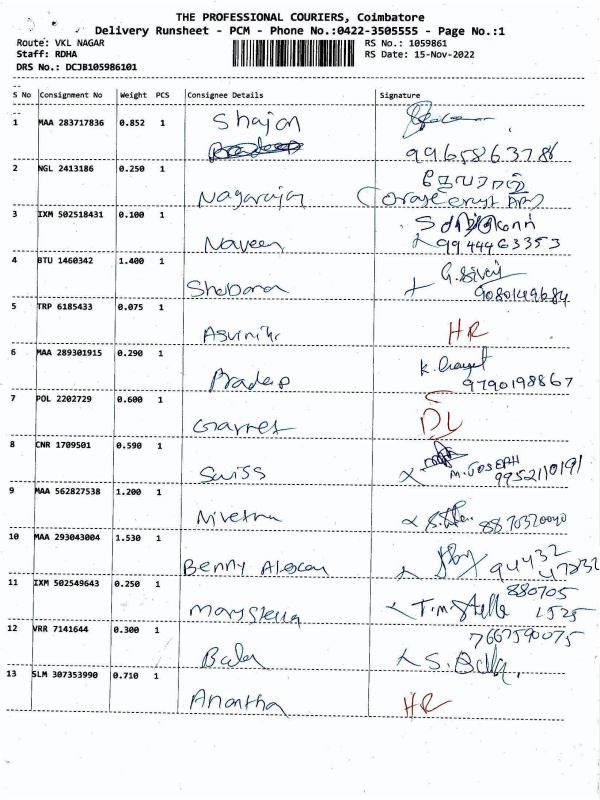 THE PROFESSIONAL COURIERS, Coimbatore
Delivery Runsheet - PCM - Phone No.:0422-3505555 - Page No.:1
Route: VKL NAGAR RS No.: 1059861
Staff: RDHA RS Date: 15-Nov-2022
DRS No.: DCJB105986101
S No Consignment No Weight PCS Consignee Details Signature
1 MAA 283717836 0.852 1 Shajan
9965863786
2 NGL 2413186 0.250 1 Nagaraja
3 IXM 502518431 0.100 1 Naveen
9944463353
4 BTU 1460342 1.400 1 Shobana G. Sivaj
9080149684
5 TRP 6185433 0.075 1 HR
6 MAA 289301915 0.290 1 Pradeep K.
9790198867
7 POL 2202729 0.600 1 Garnet DL
8 CNR 1709501 0.590 1 Swiss M. JOSEPH
9952110191
9 MAA 562827538 1.200 1 Nivetha 8870320040
10 MAA 293043004 1.530 1 Benny 94432
47232
11 IXM 502549643 0.250 1 Mary Stella T.M. Stella 880705
1525
12 VRR 7141644 0.300 1 Bala 7667590075
S. Balaji
13 SLM 307353990 0.710 1 Anantha HR